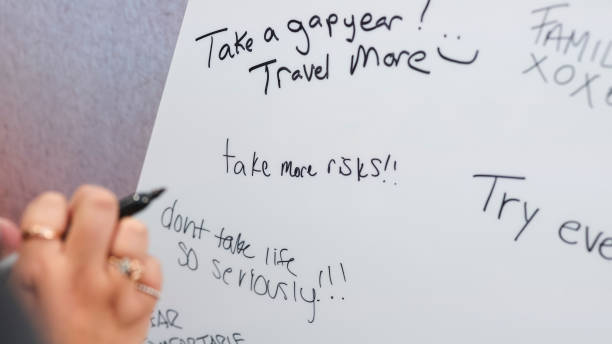 Take a gap year!
Travel More :)
FAMIL
XOXO
take more risks!!
Try eve
dont take life
so seriously!!!